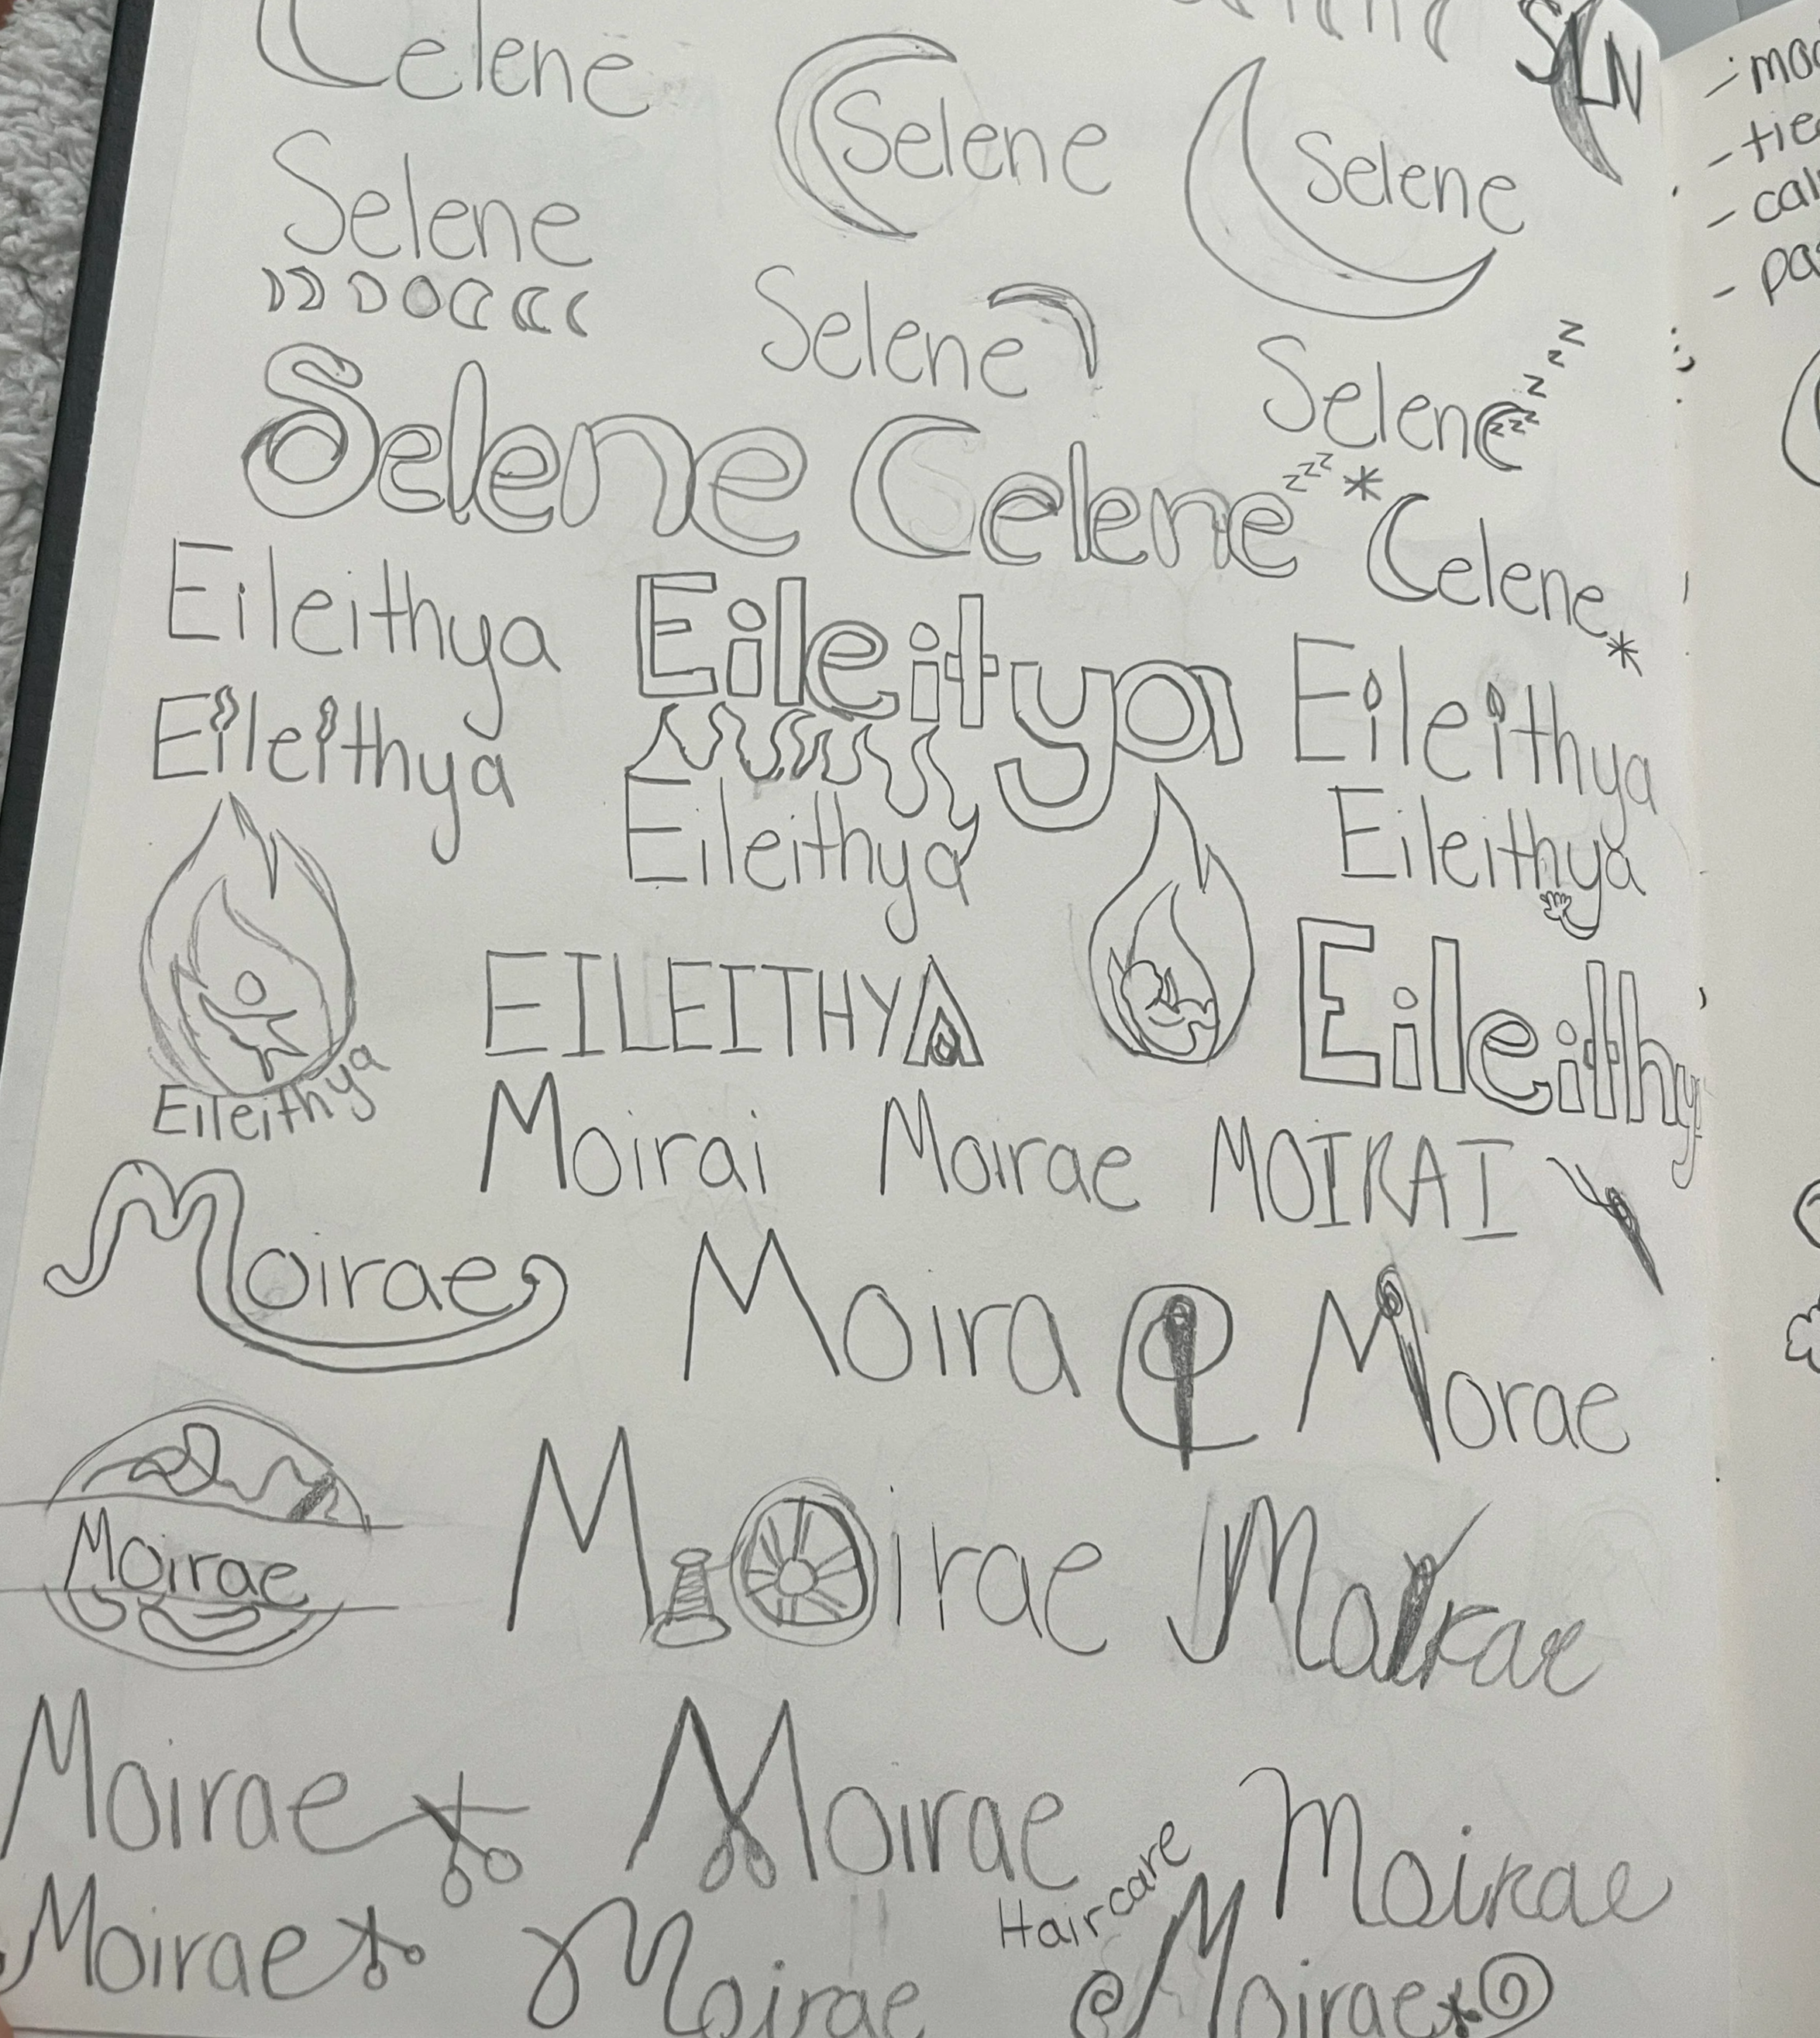 Celene
SLN
Selene
Selene
Selene
Selene
Selene
zzz
zzz
Selene
Celene
zzz
Celene
Eileithya
Eileitya
Eileithya
Eileithya
Eileithya
Eileithya
EILEITHYA
Eileithy
Eileithya
Moirai Moirae MOIRAI
Moirae
Moirae
Morae
Moirae
Moirae
Moirae
Moirae
Moirae
Moirae
Haircare
Moirae
Moirae
Moirae